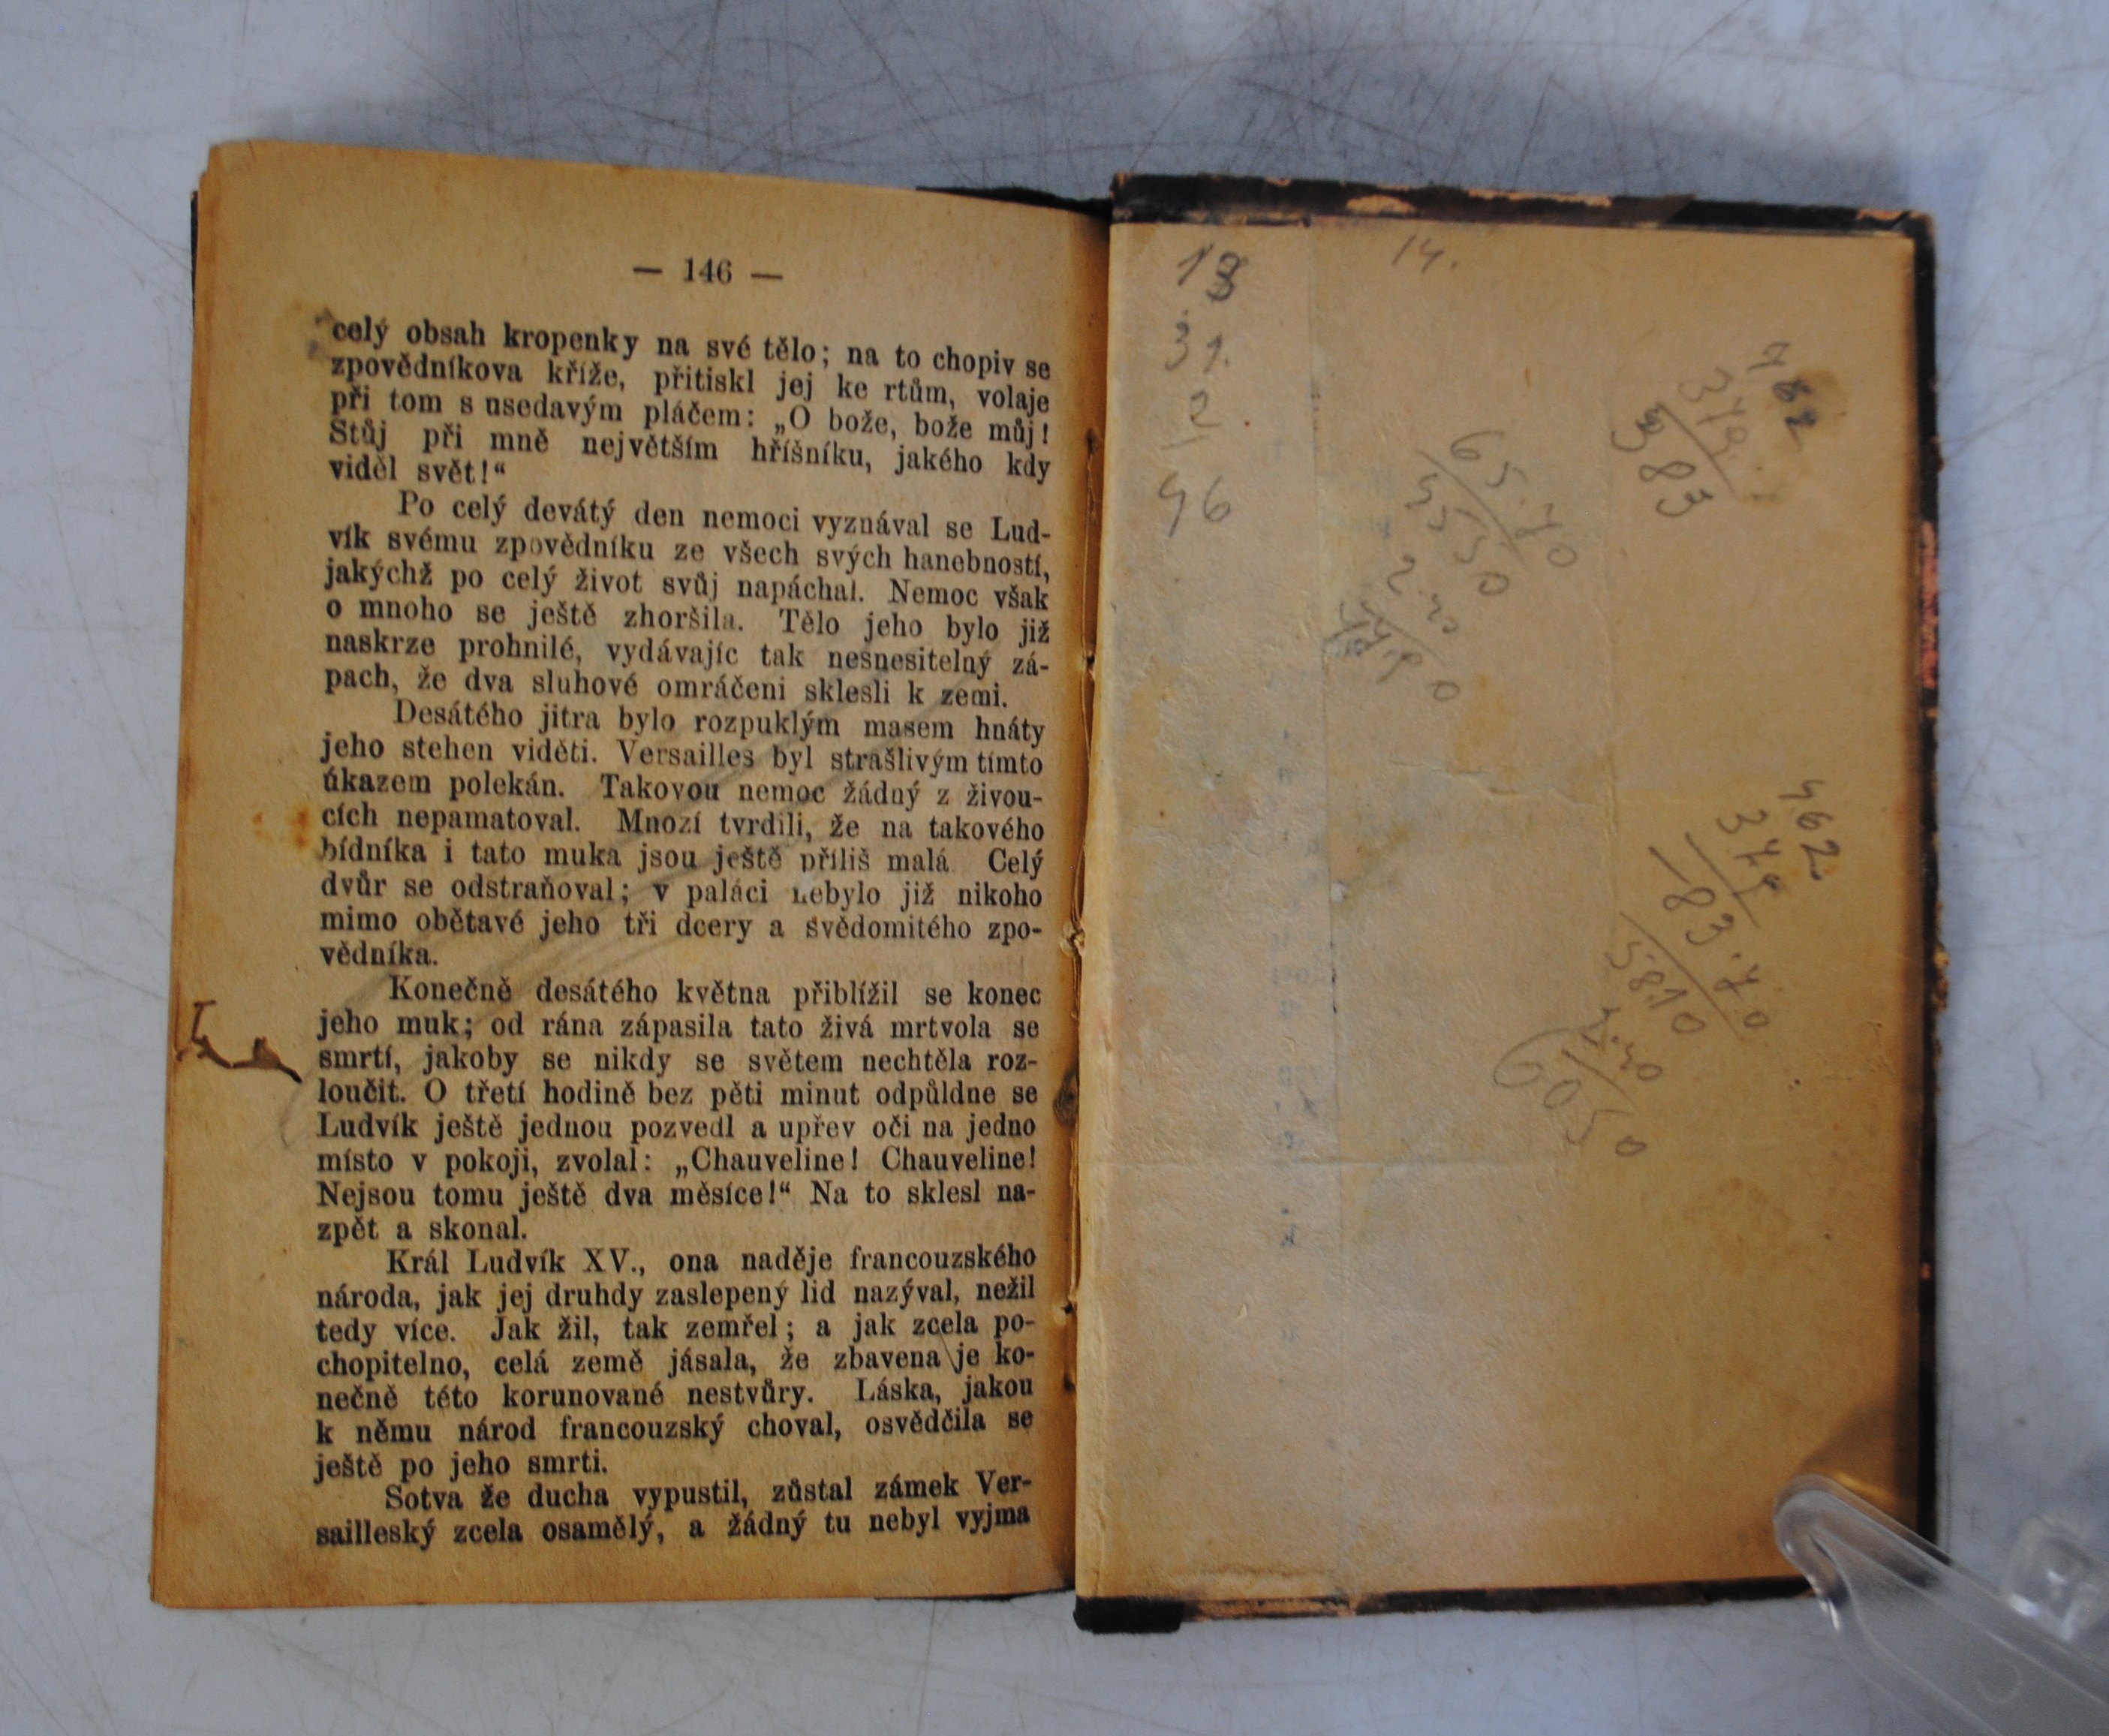 — 146 —
celý obsah kropenky na své tělo; na to chopiv se
zpovědníkova kříže, přitiskl jej ke rtům, volaje
při tom s usedavým pláčem: „O bože, bože můj!
Stůj při mně největším hříšníku, jakého kdy
viděl svět!“
Po celý devátý den nemoci vyznával se Lud-
vík svému zpovědníku ze všech svých hanebností,
jakýchž po celý život svůj napáchal. Nemoc však
o mnoho se ještě zhoršila. Tělo jeho bylo již
naskrze prohnilé, vydávajíc tak nesnesitelný zá-
pach, že dva sluhové omráčeni sklesli k zemi.
Desátého jitra bylo rozpuklým masem hnáty
jeho stehen viděti. Versailles byl strašlivým tímto
úkazem polekán. Takovou nemoc žádný z živou-
cích nepamatoval. Mnozí tvrdili, že na takového
bídníka i tato muka jsou ještě příliš malá Celý
dvůr se odstraňoval; v paláci nebylo již nikoho
mimo obětavé jeho tři dcery a svědomitého zpo-
vědníka.
Konečně desátého května přiblížil se konec
jeho muk; od rána zápasila tato živá mrtvola se
smrtí, jakoby se nikdy se světem nechtěla roz-
loučit. O třetí hodině bez pěti minut odpůldne se
Ludvík ještě jednou pozvedl a upřev oči na jedno
místo v pokoji, zvolal: „Chauveline! Chauveline!
Nejsou tomu ještě dva měsíce!“ Na to sklesl na-
zpět a skonal.
Král Ludvík XV., ona naděje francouzského
národa, jak jej druhdy zaslepený lid nazýval, nežil
tedy více. Jak žil, tak zemřel; a jak zcela po-
chopitelno, celá země jásala, že zbavena je ko-
nečně této korunované nestvůry. Láska, jakou
k němu národ francouzský choval, osvědčila se
ještě po jeho smrti.
Sotva že ducha vypustil, zůstal zámek Ver-
sailleský zcela osamělý, a žádný tu nebyl vyjma
14.
13
31.
2
46
383
65.70
5550
2.30
462
183.70
5810
6050